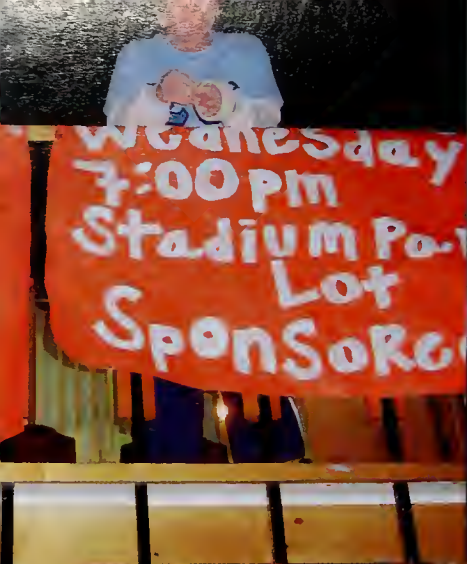 Wednesday
7:00pm
Stadium Pa
Lot
Sponsore